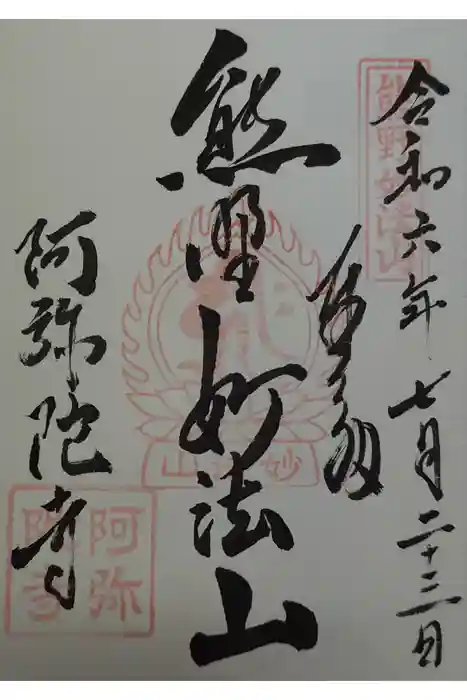 令和六年七月二十三日
奉拝
熊野妙法山
阿弥陀寺
熊野妙法山
妙法山
阿弥陀寺